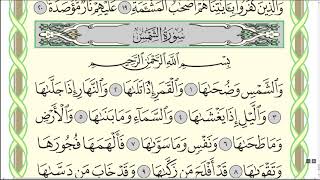 وَالَّذِينَ كَفَرُوا بِآيَاتِنَا هُمْ أَصْحَابُ الْمَشْأَمَةِ ١٩ عَلَيْهِمْ نَارٌ مُّؤْصَدَةٌ ٢٠
سُورَةُ الشَّمْسِ
بِسْمِ اللَّهِ الرَّحْمَٰنِ الرَّحِيمِ
وَالشَّمْسِ وَضُحَاهَا ١ وَالْقَمَرِ إِذَا تَلَاهَا ٢ وَالنَّهَارِ إِذَا جَلَّاهَا
٣ وَاللَّيْلِ إِذَا يَغْشَاهَا ٤ وَالسَّمَاءِ وَمَا بَنَاهَا ٥ وَالْأَرْضِ
وَمَا طَحَاهَا ٦ وَنَفْسٍ وَمَا سَوَّاهَا ٧ فَأَلْهَمَهَا فُجُورَهَا
وَتَقْوَاهَا ٨ قَدْ أَفْلَحَ مَن زَكَّاهَا ٩ وَقَدْ خَابَ مَن دَسَّاهَا